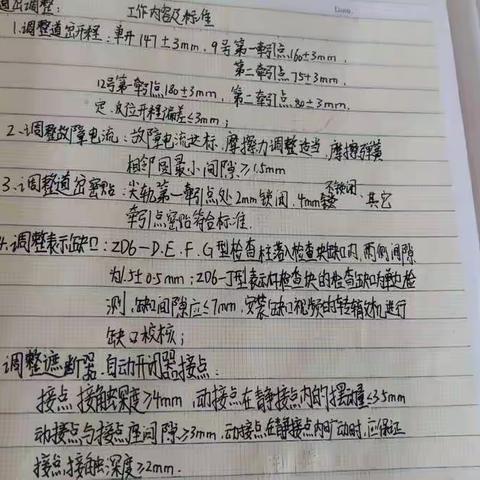 道岔调整: 工作内容及标准
1.调整道岔开程:单开147±3mm,9号第一牵引点160±3mm,
第二牵引点75±3mm,
12号第一牵引点180±3mm,第二牵引点80±3mm,
定、反位开程偏差≤3mm;
2.调整故障电流:故障电流达标,摩擦力调整适当,摩擦弹簧
相邻圈最小间隙≥1.5mm
3.调整道岔密贴:尖轨第一牵引点处2mm锁闭,4mm不锁闭,其它
牵引点密贴符合标准.
4.调整表示缺口:ZD6-D.E.F.G型检查柱落入检查块缺口内,两侧间隙
为1.5±0.5mm;ZD6-J型表示杆检查块的检查缺口为单边检
测,缺口间隙应≤7mm,安装缺口视频的转辙机进行
缺口校核;
调整遮断器、自动开闭器接点:
接点接触深度≥4mm,动接点在静接点内的摆动量≤3.5mm
动接点与接点座间隙≥3mm,动接点在静接点内扩动时,应保证
接点接触深度≥2mm.